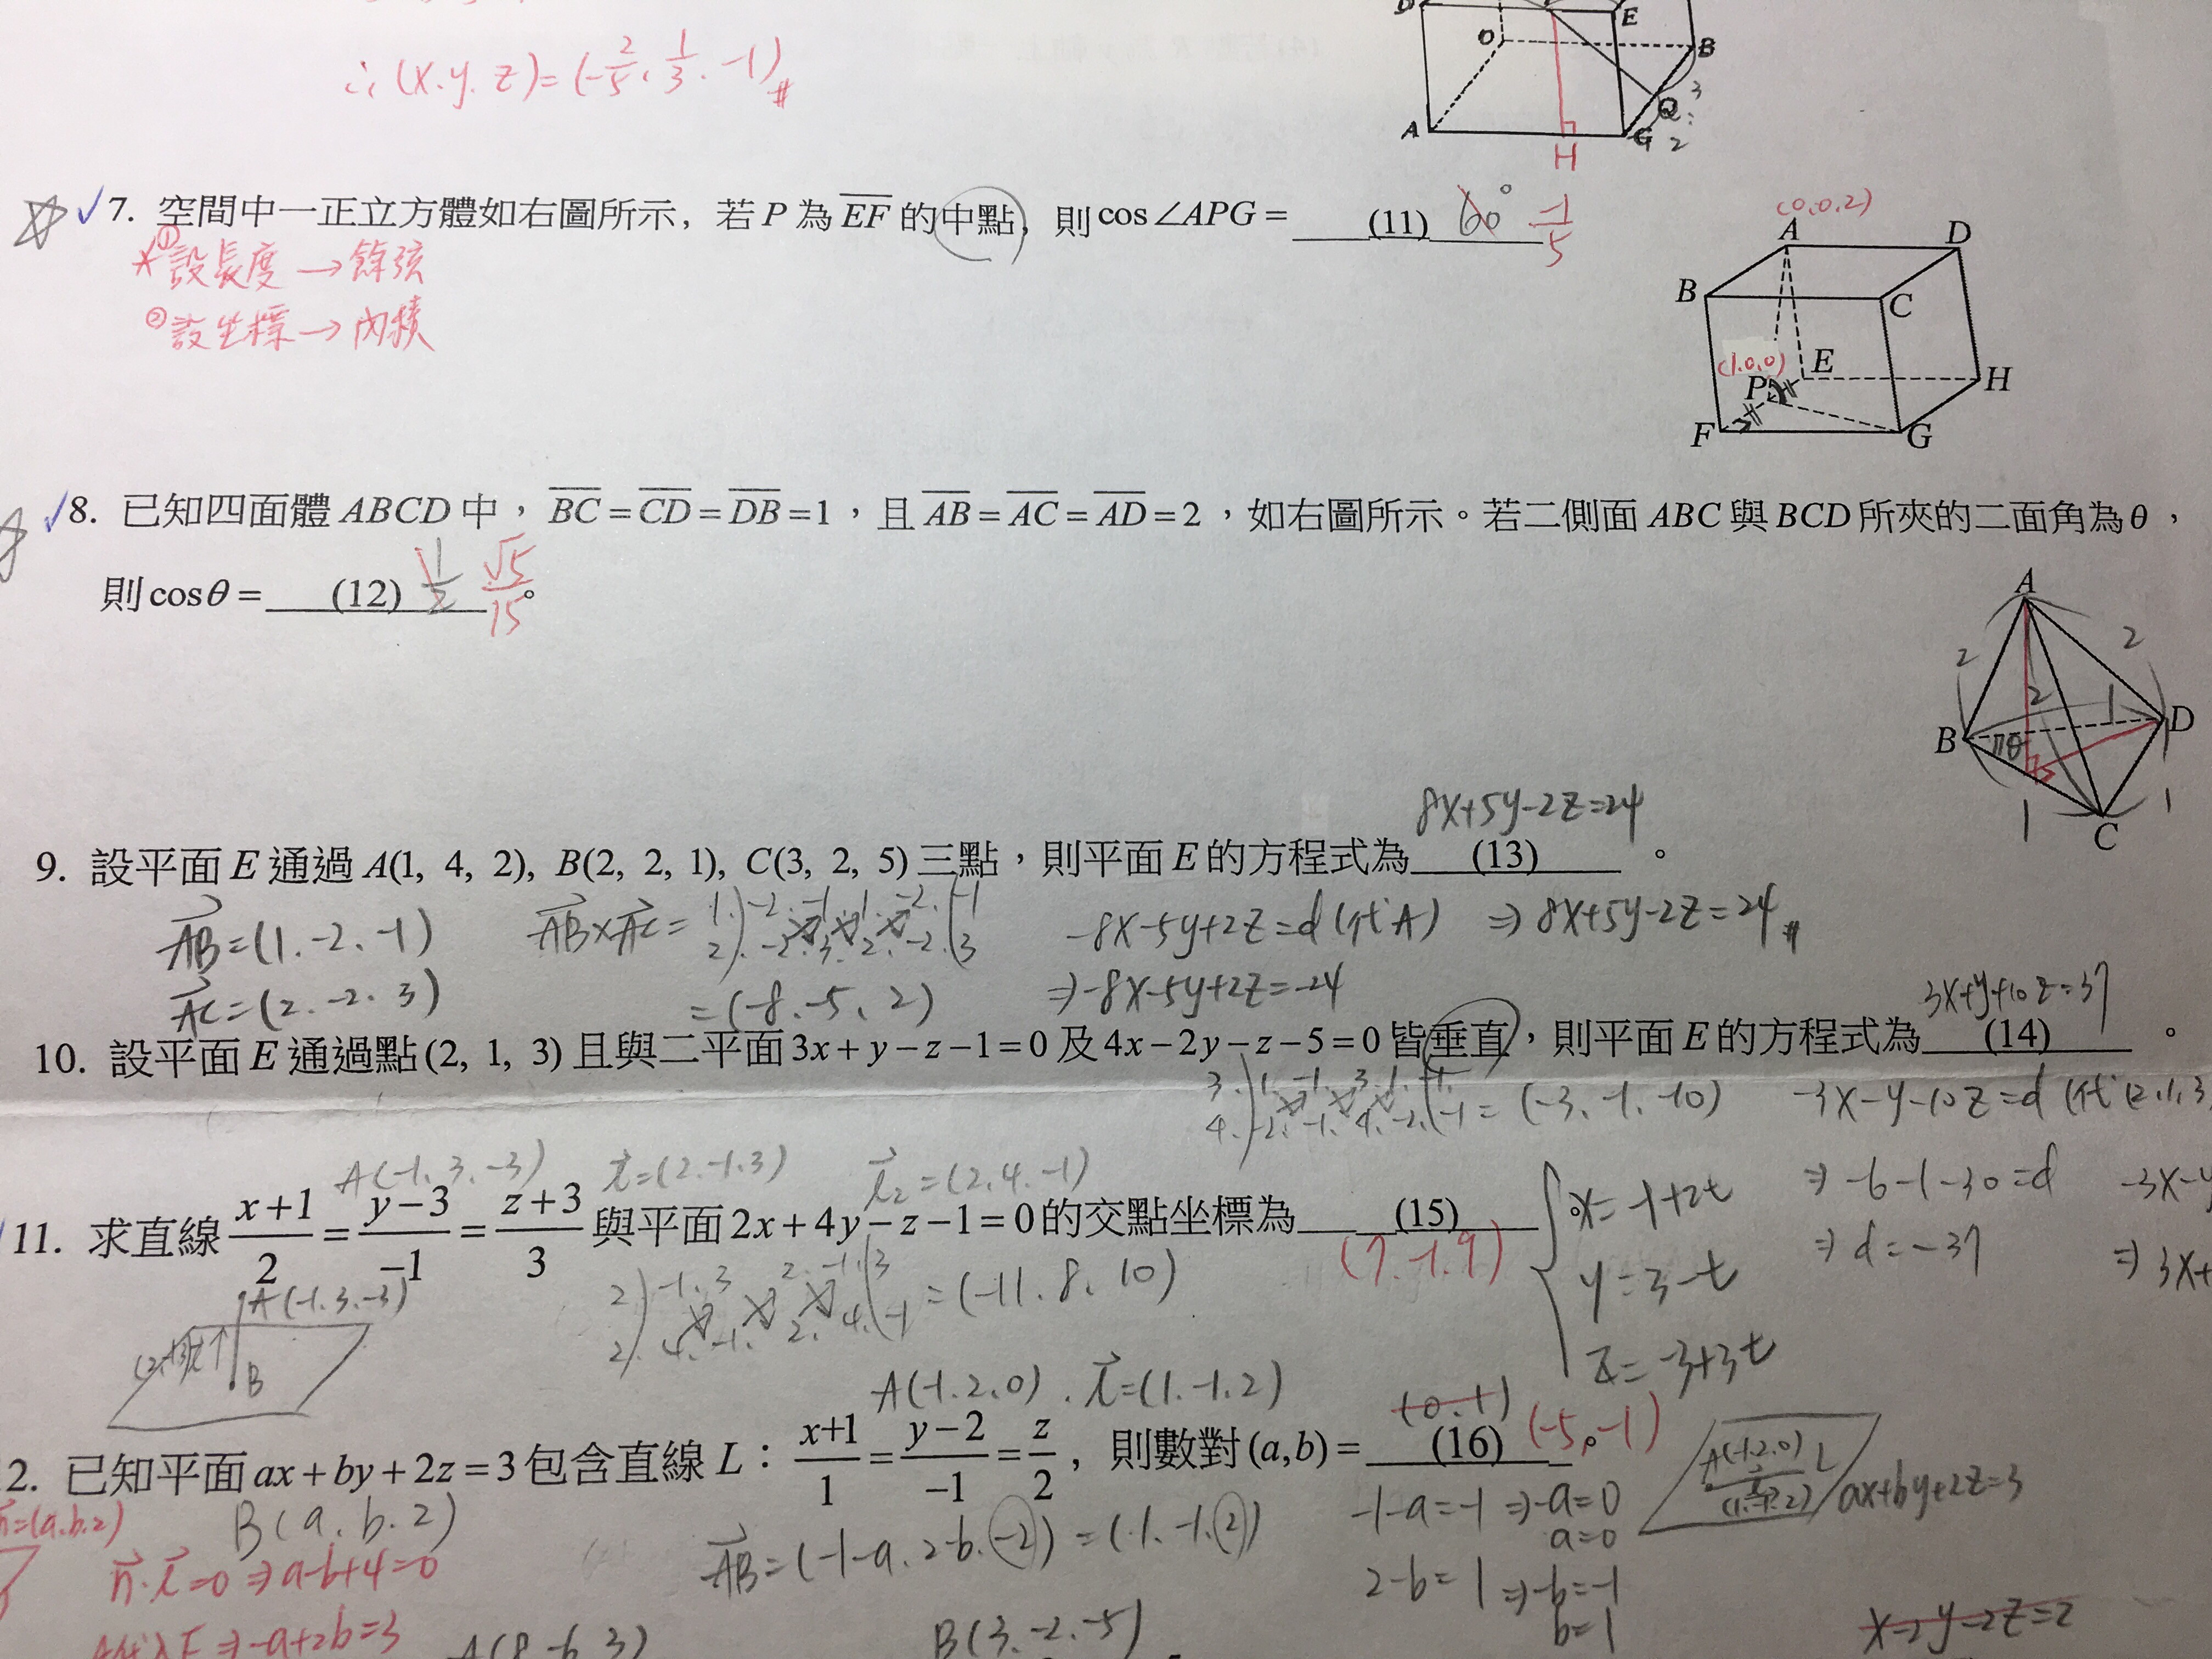 ∴(x.y.z)=(-2/5、1/3、-1)#
D E O B Q 3 A H G 2
✓7. 空間中一正立方體如右圖所示, 若 P 為 EF 的中點, 則 cos∠APG = (11) 60° -1/5
①設長度→餘弦
②設坐標→內積
(0.0.2)
A D
B C
(1.0.0) E H
P
F G
✓8. 已知四面體 ABCD 中,BC=CD=DB=1,且 AB=AC=AD=2,如右圖所示。若二側面 ABC 與 BCD 所夾的二面角為θ,
則 cosθ = (12) 1/2 √5/15 。
A
2 2
2 1
B θ D
1 1
C
8x+5y-2z=24
9. 設平面 E 通過 A(1, 4, 2), B(2, 2, 1), C(3, 2, 5) 三點,則平面 E 的方程式為 (13) 。
AB=(1.-2.-1) AB×AC= 1.)-2.-1.1.-2.(-1 -8x-5y+2z=d(代A) ⇒8x+5y-2z=24#
2).-2.3.2.-2.(3
AC=(2.-2.3) =(-8.-5、2) ⇒-8x-5y+2z=-24
3x+y+10z=37
10. 設平面 E 通過點(2, 1, 3) 且與二平面 3x+y−z−1=0 及 4x−2y−z−5=0 皆垂直,則平面 E 的方程式為 (14) 。
3.)1.-1.3.1.(-1.
4.)-2.-1.4.-2.(-1 =(-3.-1.-10) -3x-y-10z=d (代(2.1.3
A(-1.3.-3) l=(2.-1.3) l₂=(2.4.-1)
⇒-6-1-30=d -3x-y
11. 求直線 x+1/2 = y−3/−1 = z+3/3 與平面 2x+4y−z−1=0 的交點坐標為 (15) 。
(7.-1.9)
x=-1+2t
y=3-t
z=-3+3t
⇒d=-37 ⇒3x+
A(-1.3.-3)
B
2)-1.3.2.-1.(3
2)4.-1.2.4.(-1 =(-11.8.10)
A(-1.2.0). l=(1.-1.2)
(0.1)
2. 已知平面 ax+by+2z=3 包含直線 L: x+1/1 = y−2/−1 = z/2 , 則數對 (a,b) = (16) (-5,-1) 。
A(-1.2.0) L
(1.-1.2) ax+by+2z=3
n=(a.b.2) B(a.b.2)
AB=(-1-a.2-b.-2)=(1.-1.2) -1-a=-1⇒-a=0
a=0
n·l=0⇒a-b+4=0
2-b=1⇒-b=-1
b=1
⇒-a+2b=3 A(8.-6.3) B(3.-2.-5)
x-2y-2z=2